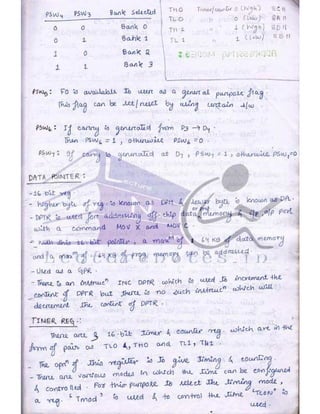 PSW4 PSW3 Bank Selected
0 0 Bank 0
0 1 Bank 1
1 0 Bank 2
1 1 Bank 3
TH0 Timer/counter 0 (high) 8C H
TL0 0 (low) 8A H
TH 1 1 (high) 8D H
TL 1 1 (low) 8B H
PSW5: F0 is available to user as a general purpose flag.
This flag can be set/reset by using certain s/w.
PSW6: If carry is generated from D3 → D4.
Then PSW6 = 1, otherwise PSW6 = 0.
PSW7: If carry is generated at D7, PSW7 = 1, otherwise PSW7=0
DATA POINTER:
- 16 bit reg
- higher byte of reg. is known as DPH & lower byte is known as DPL.
- DPTR is used for addressing off chip data memory & port
with a command MOV X and MOV C.
- With this 16-bit pointer, a maxm of 64 KB of data memory
and a maxm of 64 KB of prog. memory can be addressed
- Used as a GPR.
- There is an instrucn INC DPTR which is used to increment the
content of DPTR but there is no such instrucn which will
decrement the content of DPTR.
TIMER REG.:
There are 2 16-bit timer & counter reg. which are in the
form of pair as TL0 &, TH0 and TL1, TH1.
- The opn of this register is to give timing & counting.
- There are various modes in which the timer can be configured
& controlled. For this purpose to select the timing mode,
a reg. 'Tmod' is used & to control the time 'TCON' is
used.